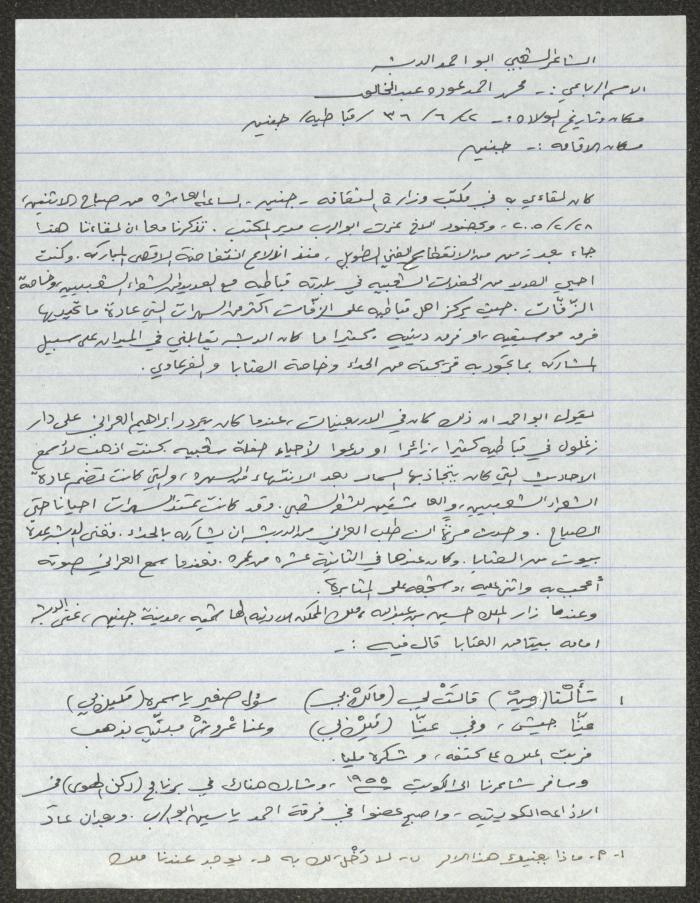 الشاعر الشعبي ابو احمد الدبشه
الاسم الرباعي :- محمد احمد عوده عبد الخالق
مكان وتاريخ الولادة :- ٢٢/ ٦/ ٣٦ / قباطيه/ جنين
مكان الاقامه :- جنين
كان لقائي به في مكتب وزارة الثقافه - جنين - الساعه العاشره من صباح الاثنين،
٢٨/ ٢/ ٢٠٠٥ - وبحضور الاخ عزت ابو الرب مدير المكتب . تذكرنا معا ان لقاءنا هذا
جاء بعد زمن من الانقطاع الفني الطويل ، منذ اندلاع انتفاضة الاقصى المباركه . وكنت
احيي العديد من الحفلات الشعبيه في بلدته قباطيه مع العديد من الشعراء الشعبيين وخاصة
الزفّات . حيث يركز اهل قباطيه على الزفّات اكثر من السهرات التي عادة ما تحييها
فرق موسيقيه ، او فرق دينيه . كثيرا ما كان الدبشه يقابلني في الميدان على سبيل
المشاركه بما تجود به قريحته من الحداء وخاصة العتابا والفرعاوي .
يقول ابو احمد ان ذلك كان في الاربعينات ، عندما كان يتردد ابراهيم العراني على دار
زغلول في قباطيه كثيرا ، زائرا او مدعوا لأحياء حفلة شعبيه . كنت اذهب لأسمع
الاحاديث التي كان يتجاذبها السمار بعد الانتهاء من السهره ، والتي كانت تضم عادة
الشعراء الشعبيين ، والعاشقين للشعر الشعبي . وقد كانت تمتد السهرات احيانا حتى
الصباح . وحدث مرّة ان طلب العراني من الدبشه ان يشاركه بالحداء . فغنى الدبشه عدة
بيوت من العتابا . وكان عندها في الثانية عشره من عمره . فعندما سمع العراني صوته
أعجب به واثنى عليه ، وشجعه على المثابرة .
وعندما زار الملك حسين بن عبد الله ، ملك المملكه الاردنيه الهاشميه ، مدينة جنين ، غنى الدبشه
امامه بيتا من العتابا قال فيه : -
١ سَأَلتنا قالَتْ لي (مالك بي) سؤال صغير يا سمره
عنّا جيش ، وفي عنّا (مَلِك بي) وعنا عروش مبنيّه بذهب
فربت الملك على كتفه ، وشكره مليا .
وسافر شاعرنا الى الكويت ١٩٥٥ ، وشارك هناك في برنامج (ركن الهوى) في
الاذاعه الكويتيه ، واصبح عضوا في فرقة احمد ياسين ابو الرب . وبعد ان عاد
١- م. ماذا يعنيك هذا الامر ب- لا دَخْل لك به د- يوجد عندنا ملك